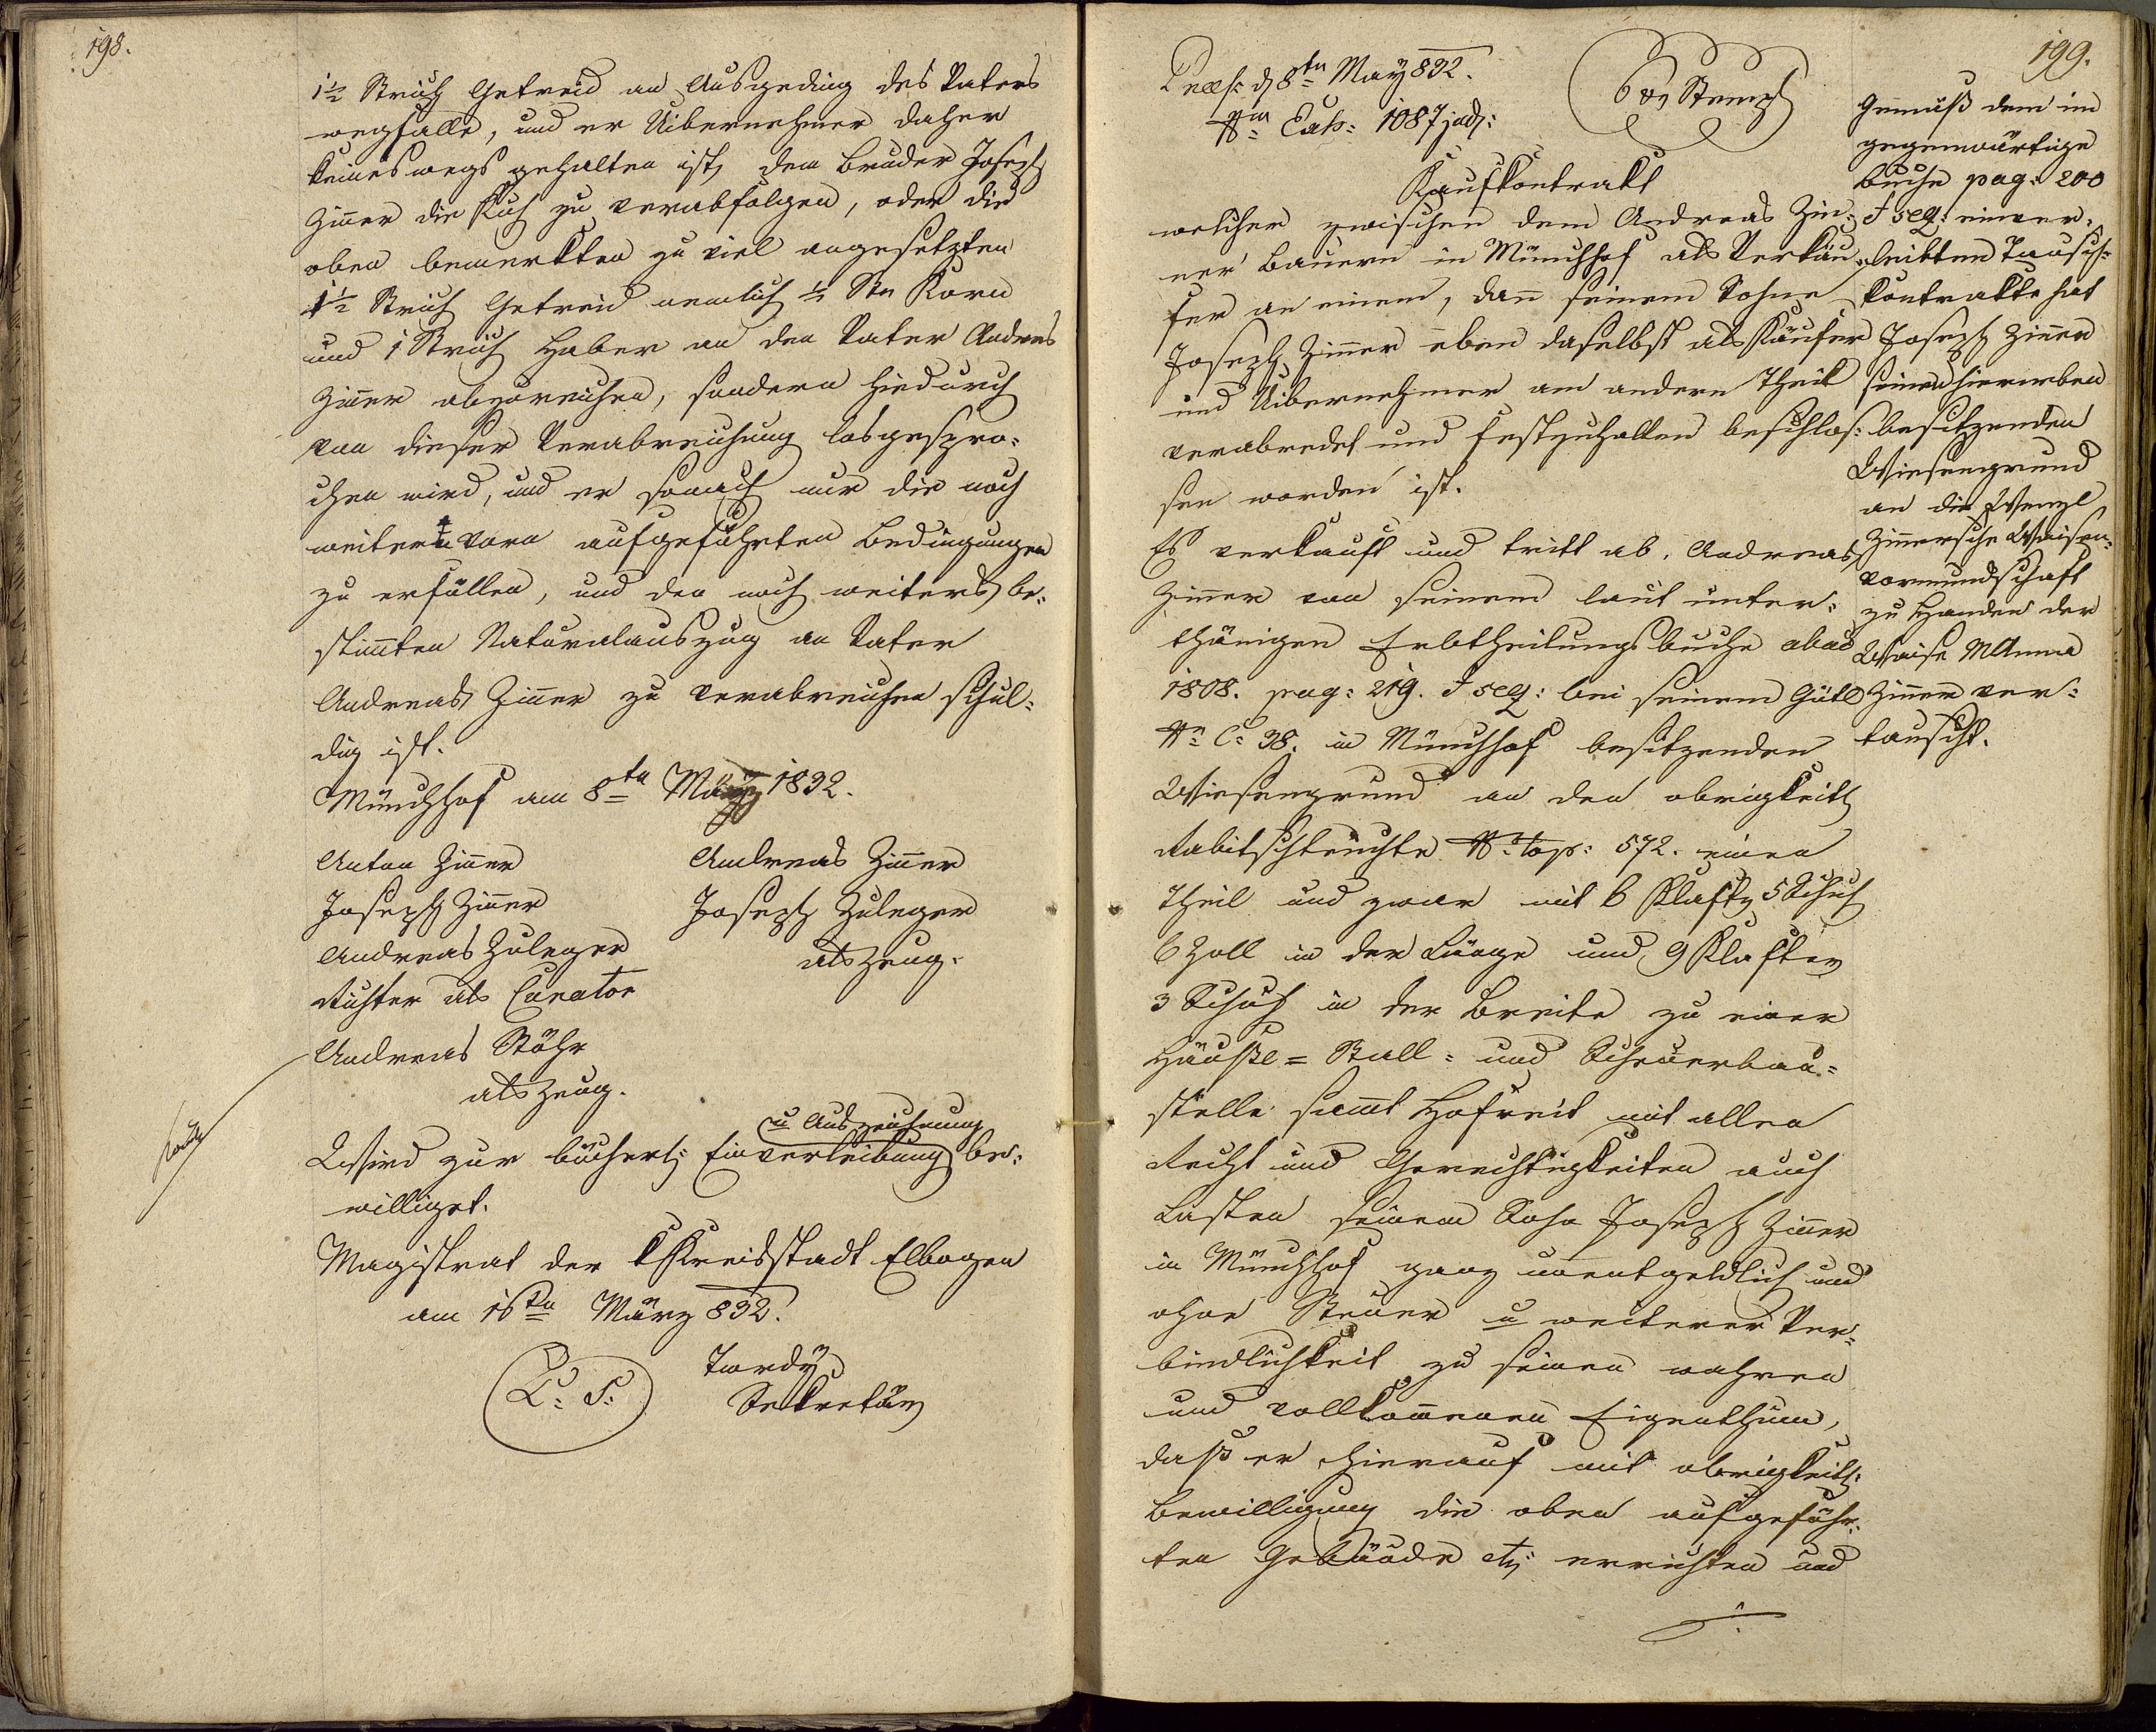 198.
1½ Strich Getreid an Ausgeding des Vaters
wegfalle, und er Uibernehmer daher
keineswegs gehalten ist, dem Bruder Joseph
Zinner die Kuh zu verabfolgen, oder die
oben bemerkten zu viel angesetzten
1½ Strich Getreid nemlich ½ Str Korn
und 1 Strich Haber an den Vater Andreas
Zinner abzureichen, sondern hiedurch
von dieser Verabreichung losgespro-
chen wird, und er sonach nur die noch
weiters vorn aufgeführten Bedingungen
zu erfüllen, und den noch weiters be-
stimmten Naturalauszug an Vater
Andreas Zinner zu verabreichen schul-
dig ist.
Münchhof am 8ten März 1832.
Anton Zinner
Andreas Zinner
Joseph Zinner
Joseph Zuleger
Andreas Zuleger
als Zeug.
Richter als Curator
Andreas Stöhr
als Zeug.
u Auszeichnung
Wird zur bücherl: Einverleibung be-
williget.
Magistrat der k Kreisstadt Elbogen
am 16ten März 832.
L: S:
Tardy
Sekretär
199.
Praes: d 8ten May 832.
Nm Exh: 1087 jud:
6 xr Stempl
Kaufkontrakt
welcher zwischen dem Andreas Zin-
ner Bauern in Münchhof als Verkäu-
fer an einem, dann seinem Sohne
Joseph Zinner eben daselbst als Käufer
und Uibernehmer am andern Theil
verabredet und festzuhalten beschlos-
sen worden ist.
Es verkauft und tritt ab, Andreas
Zinner von seinem laut unter-
thänigen Erbtheilungsbuche ab ao
1808. pag: 219. & seq: bei seinem Gütl
Nr C: 38. in Münchhof besitzenden
Wiesengrund an den obrigkeitl
Rabitschteuchte Nr top: 572. einen
Theil und zwar mit 6 Klaftr 5 Schuh
6 Zoll in der Länge und 9 Klafter
3 Schuh in der Breite zu einer
Häusl- Stall- und Scheuerbau-
stelle sammt Hofreit mit allen
Recht und Gerechtigkeiten auch
Lasten seinem Sohn Joseph Zinner
in Münchhof ganz unentgeldlich und
ohne Steuer u weiterer Ver-
bindlichkeit zu seinen wahren
und vollkommenen Eigenthum,
daß er hierauf mit obrigkeitl:
Bewilligung die oben aufgeführ-
ten Gebäude etz: errichten und
Gemäß dem im
gegenwärtige
Buche pag: 200
& seq: einver-
leibten Tausch-
kontrakte hat
Joseph Zinner
seinen hierneben
besitzenden
Wiesengrund
an die Wenzl
Zinnersche Waisen-
vormundschaft
zu Handen der
Waise MAnna
Zinner ver-
tauscht.